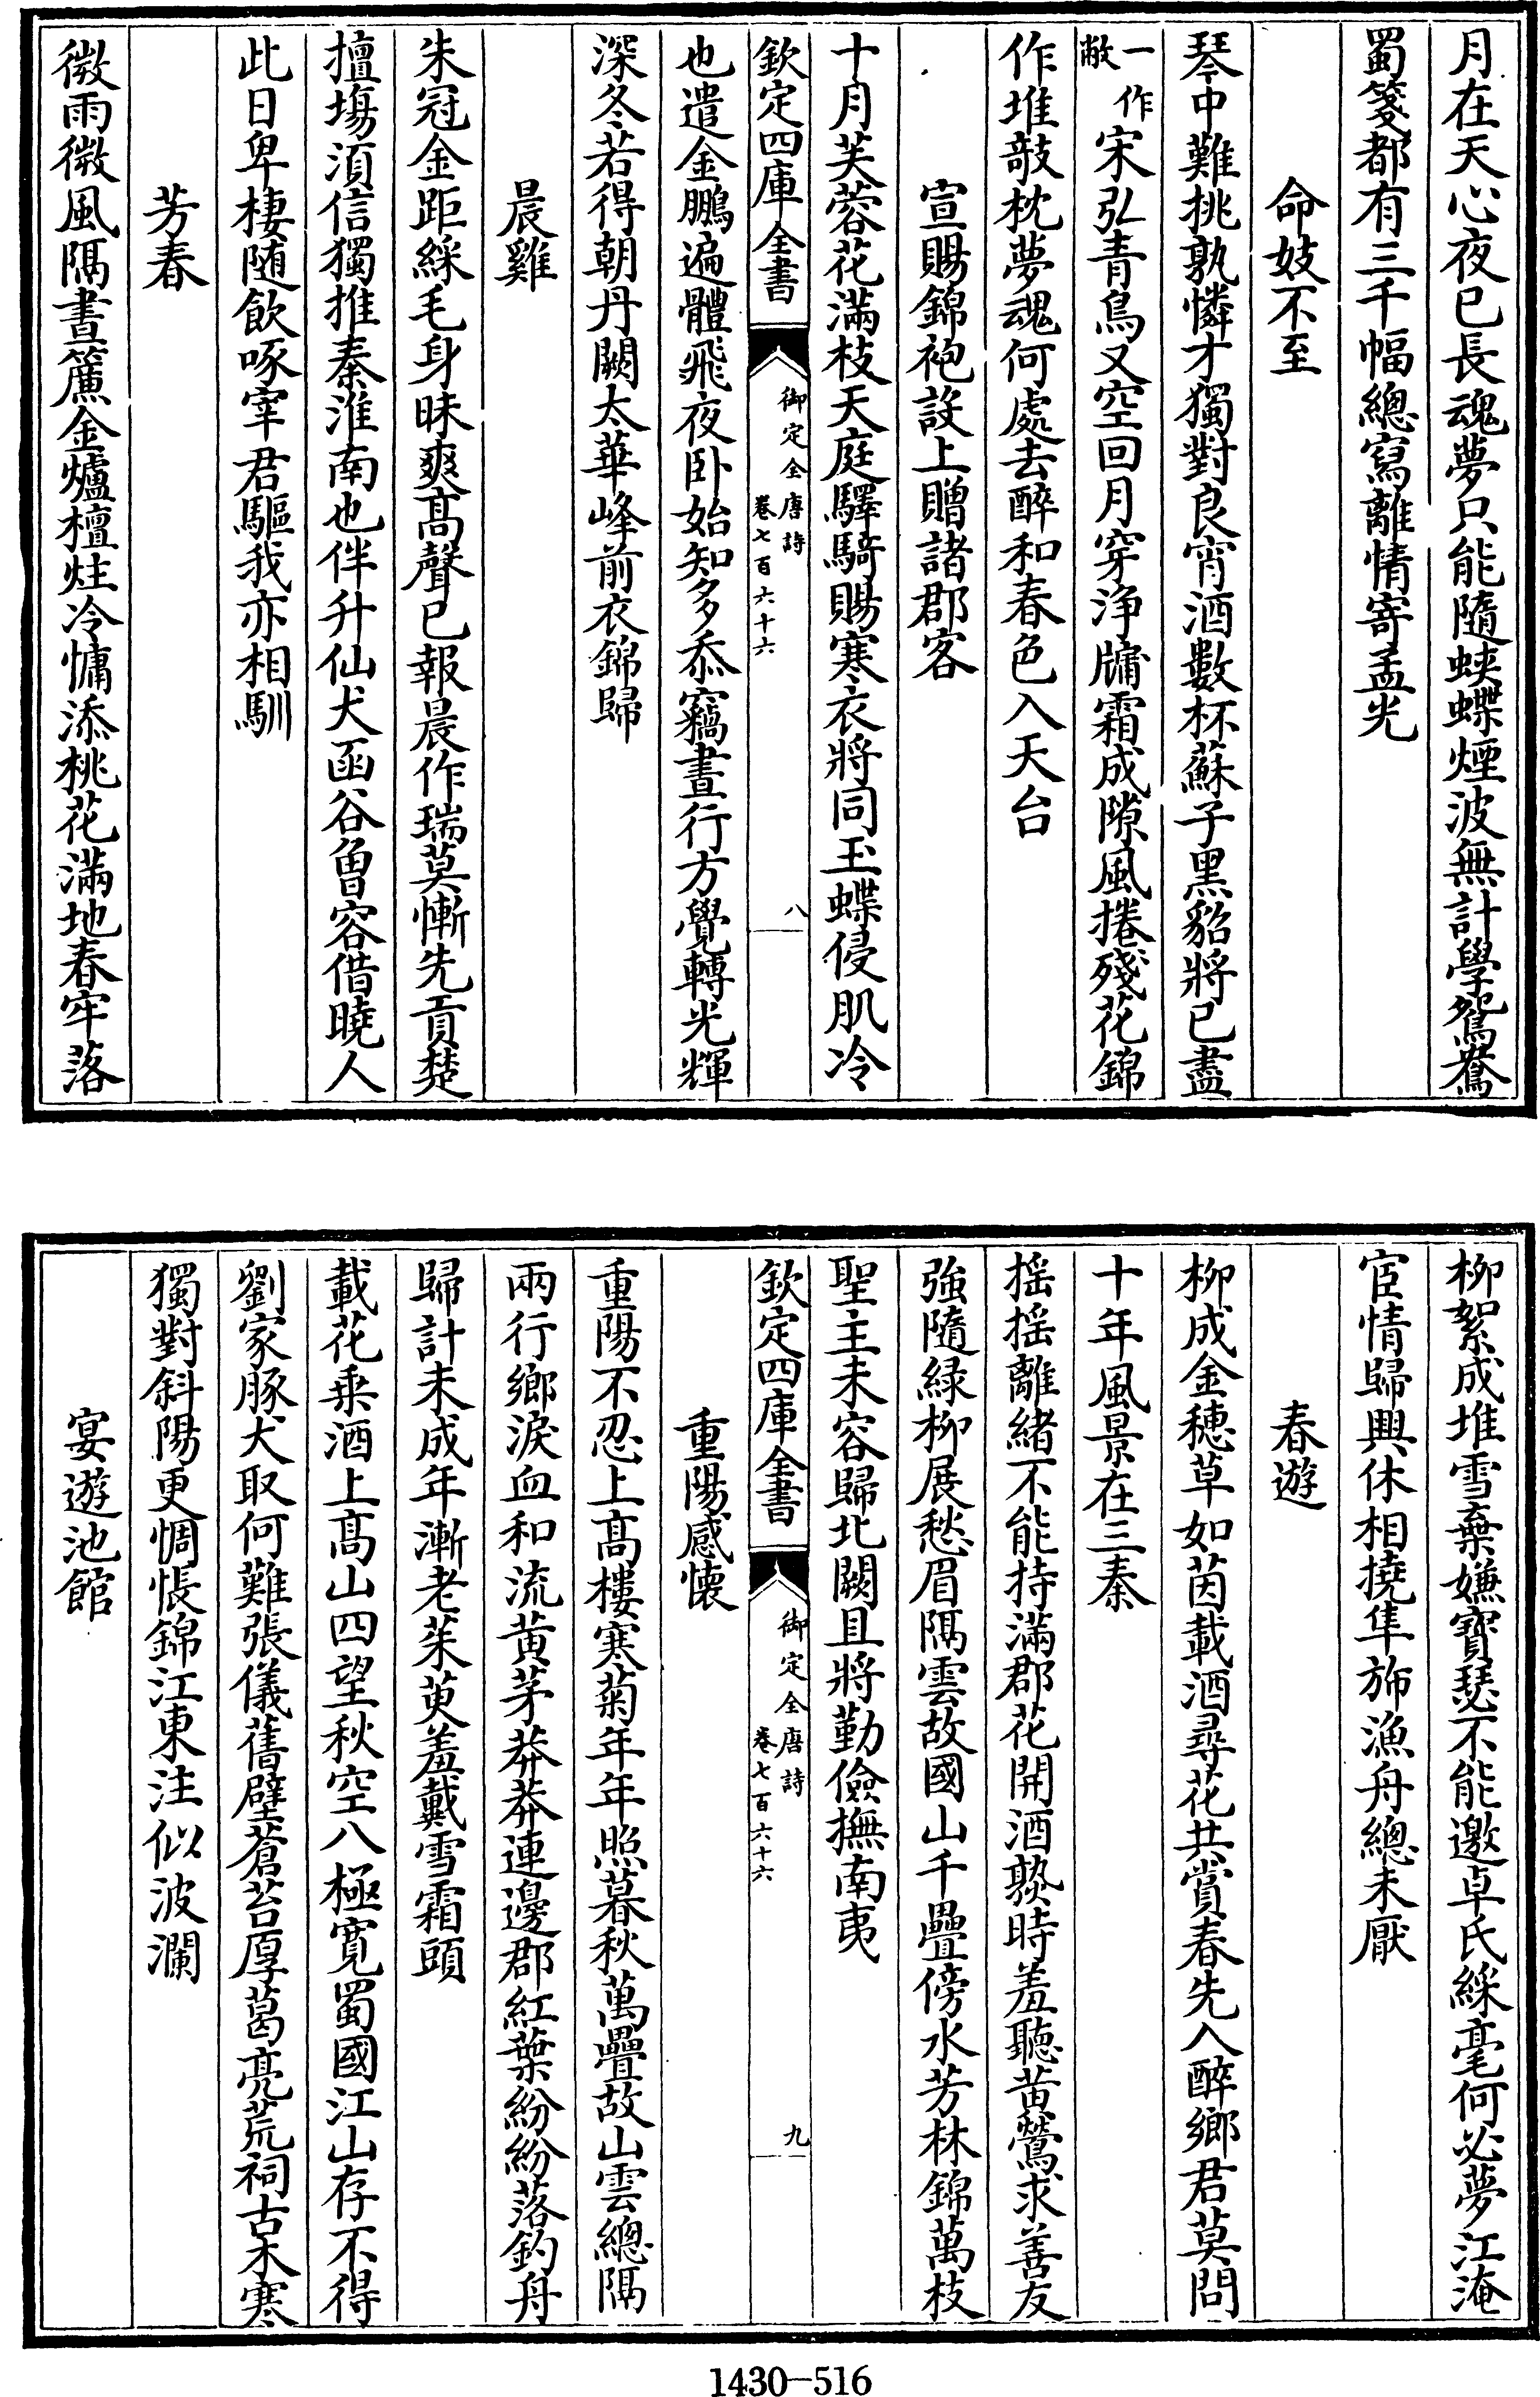 月在天心夜已長魂夢只能隨蛺蝶煙波無計學鴛鴦
蜀箋都有三千幅總寫離情寄孟光
命妓不至
琴中難挑孰憐才獨對良宵酒數杯蘇子黑貂將已盡
一作敝宋弘青鳥又空回月穿浄牖霜成隙風捲殘花錦
作堆敧枕夢魂何處去醉和春色入天台
宣賜錦袍設上贈諸郡客
十月芙蓉花滿枝天庭驛騎賜寒衣將同玉蝶侵肌冷
欽定四庫全書
御定全唐詩
卷七百六十六
八
也遣金鵬遍體飛夜卧始知多忝竊晝行方覺轉光輝
深冬若得朝丹闕太華峰前衣錦歸
晨雞
朱冠金距綵毛身昧爽髙聲已報晨作瑞莫慚先貢楚
擅塲須信獨推秦淮南也伴升仙犬函谷曽容借曉人
此日卑棲随飲啄宰君驅我亦相馴
芳春
微雨微風隔晝簾金爐檀炷冷慵添桃花滿地春牢落
柳絮成堆雪棄嫌寳瑟不能邀卓氏綵毫何必夢江淹
宦情歸興休相撓隼斾漁舟總未厭
春遊
柳成金穗草如茵載酒尋花共賞春先入醉鄉君莫問
十年風景在三秦
揺揺離緒不能持滿郡花開酒熟時羞聽黄鶯求善友
強隨緑柳展愁眉隔雲故國山千疊傍水芳林錦萬枝
聖主未容歸北闕且將勤儉撫南夷
欽定四庫全書
御定全唐詩
卷七百六十六
九
重陽感懐
重陽不忍上髙樓寒菊年年照暮秋萬疊故山雲總隔
兩行鄉淚血和流黄茅莽莽連邊郡紅葉紛紛落釣舟
歸計未成年漸老茱萸羞戴雪霜頭
載花乗酒上髙山四望秋空八極寛蜀國江山存不得
劉家豚犬取何難張儀舊壁蒼苔厚葛亮荒祠古木寒
獨對斜陽更惆悵錦江東注似波瀾
宴遊池館
1430—516